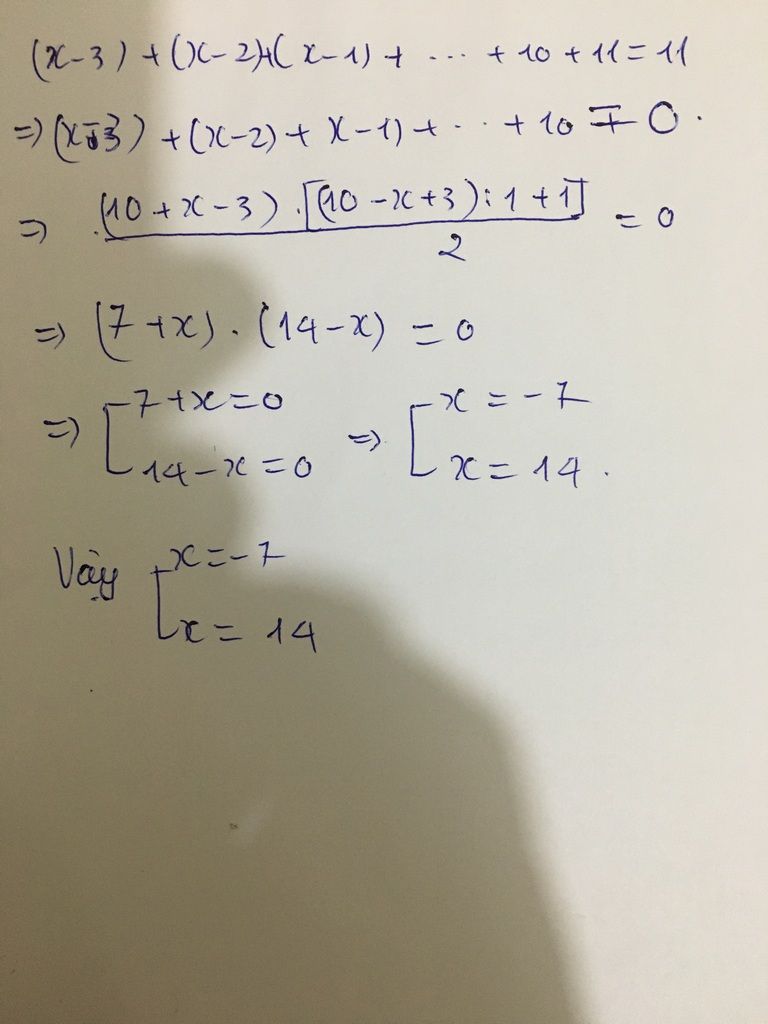 (x-3) + (x-2)+( x-1) + ... + 10 + 11 = 11
=> (x-3) + (x-2) + x-1) + ... + 10 = 0.
=> (10 + x - 3) . [(10 - x + 3) : 1 + 1] / 2 = 0
=> (7 + x) . (14 - x) = 0
=> [ 7 + x = 0 => [ x = -7
14 - x = 0 x = 14.
Vậy [ x = -7
x = 14